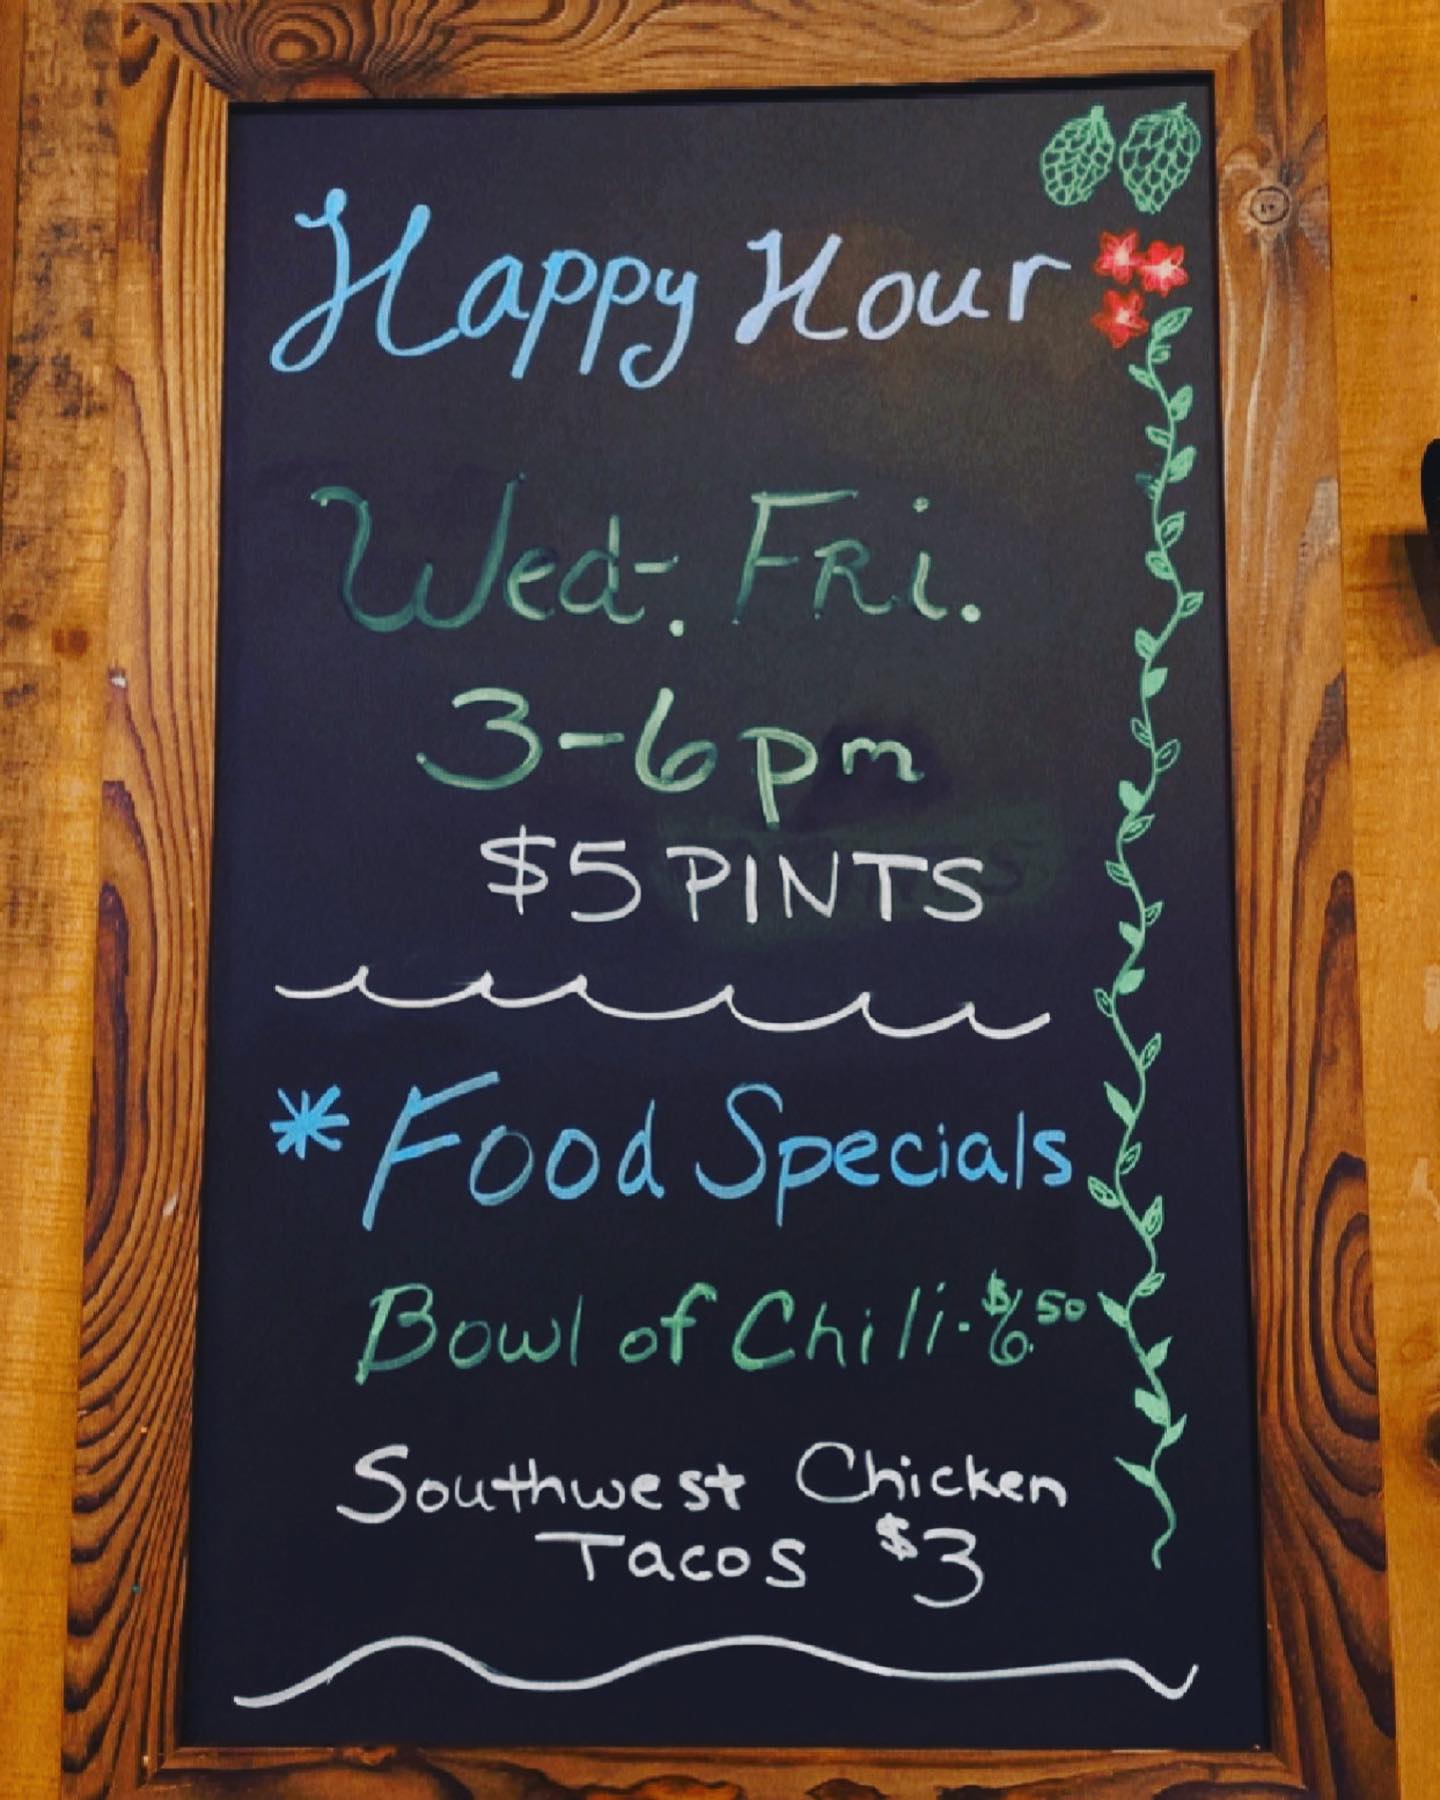 Happy Hour
Wed-. Fri.
3-6pm
$5 PINTS
*Food Specials
Bowl of Chili-$6.50
Southwest Chicken
Tacos $3